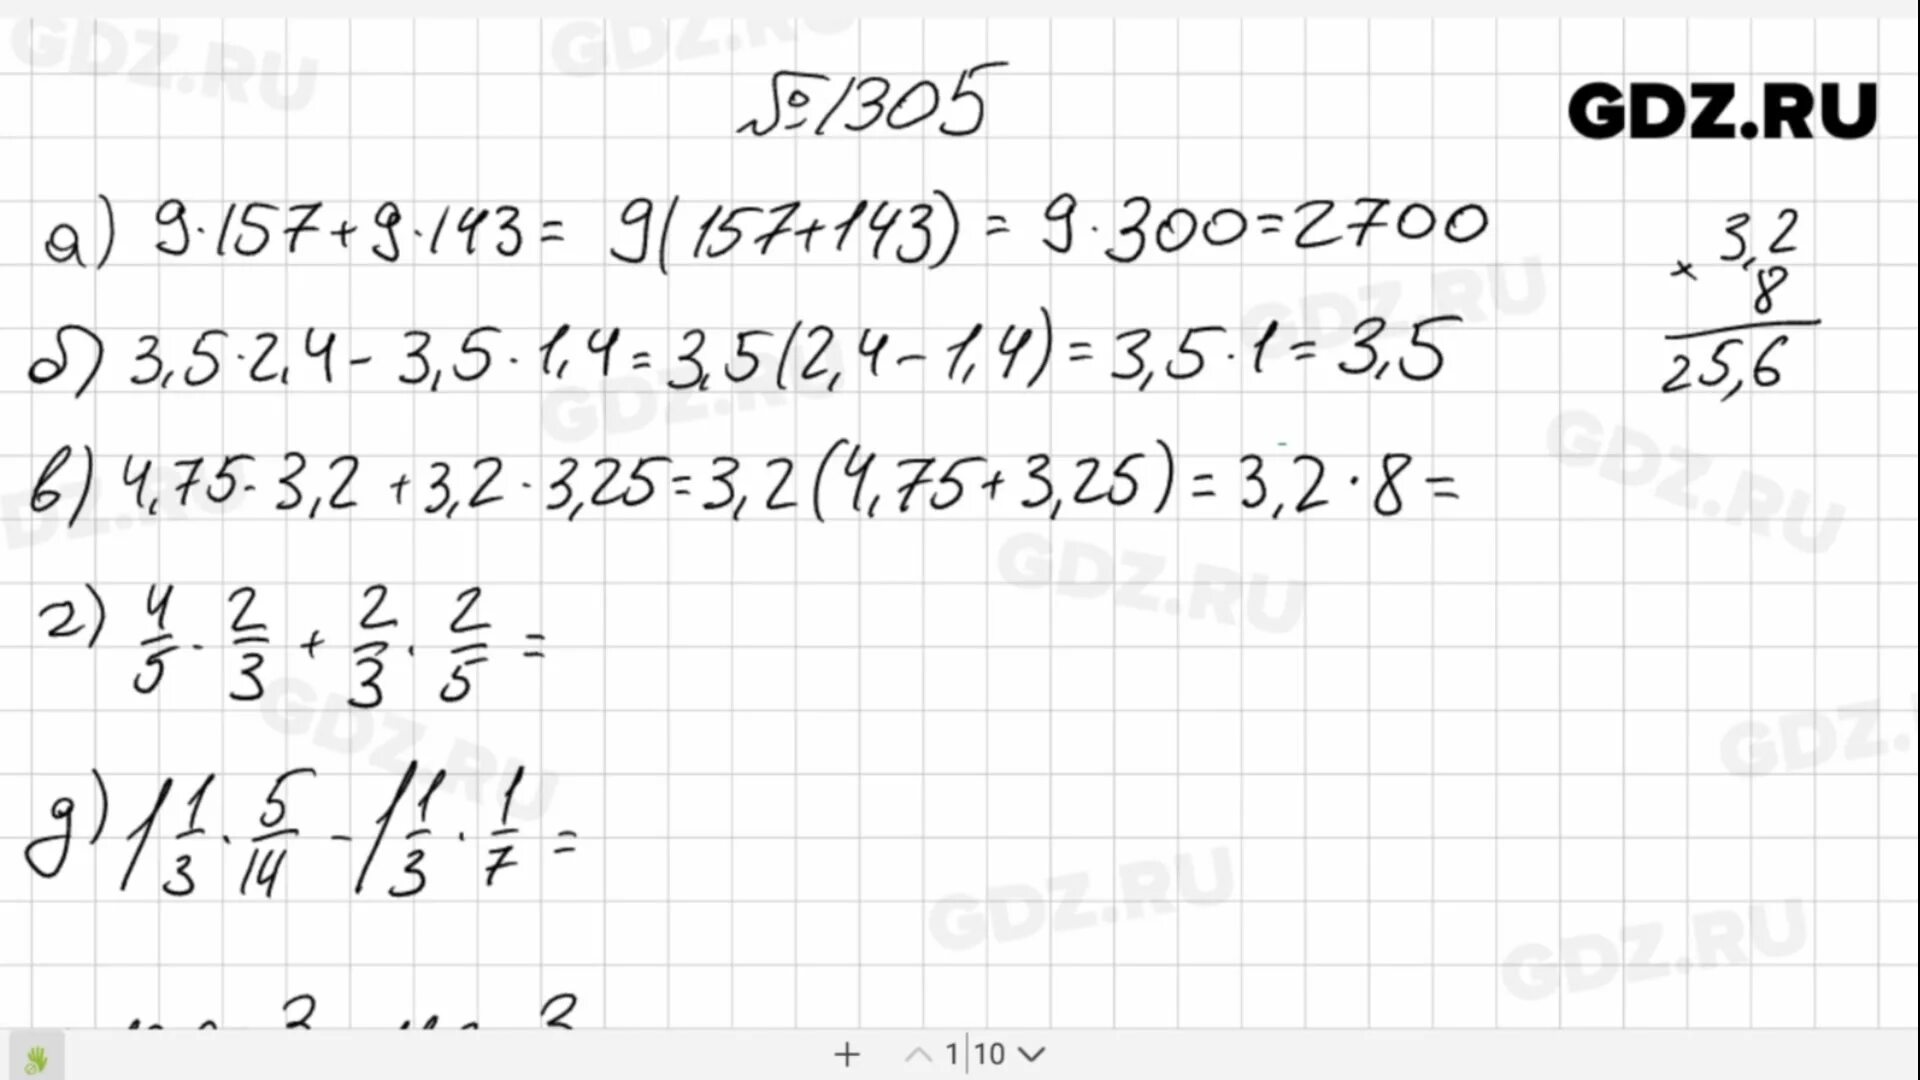 №1305
GDZ.RU
а) 9·157+9·143= 9(157+143)=9·300=2700
3,2
× 8
25,6
б) 3,5·2,4-3,5·1,4=3,5(2,4-1,4)=3,5·1=3,5
в) 4,75·3,2+3,2·3,25=3,2(4,75+3,25)=3,2·8=
г) 4/5·2/3+2/3·2/5=
д) 1 1/3·5/14-1 1/3·1/7=
1|10